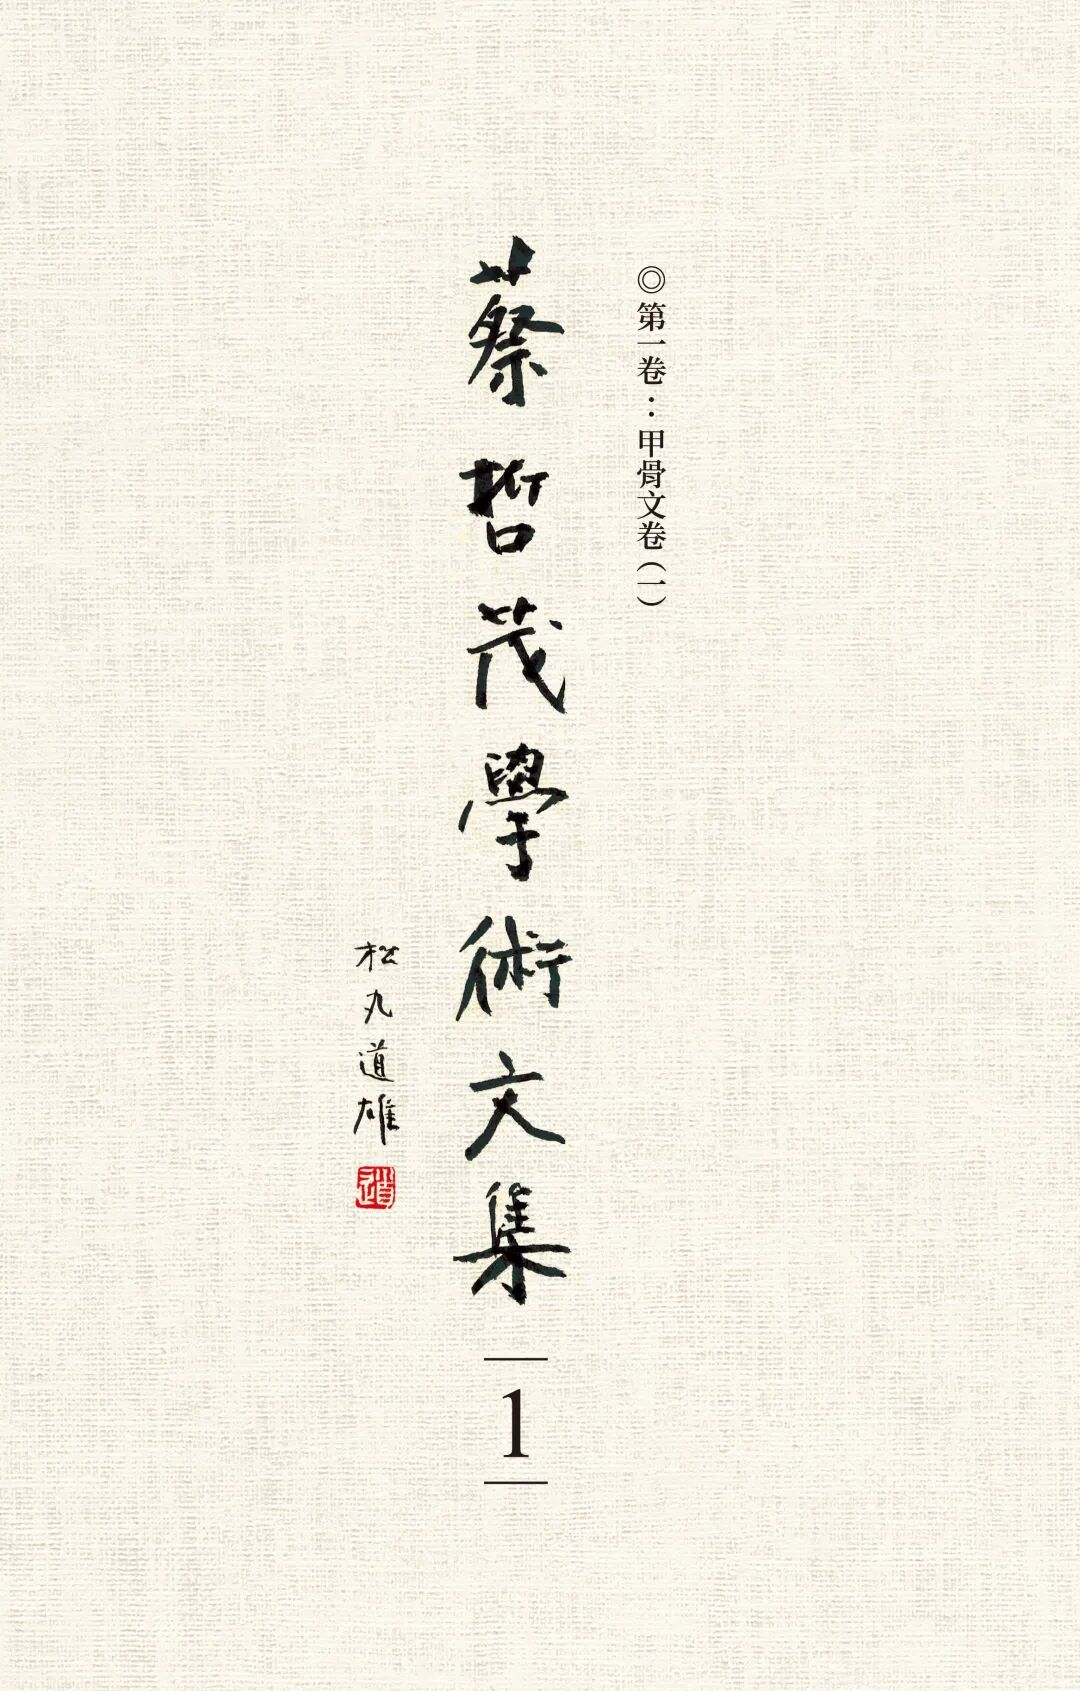 ◎第一卷：甲骨文卷（一）
蔡哲茂學術文集
1
松丸道雄
道